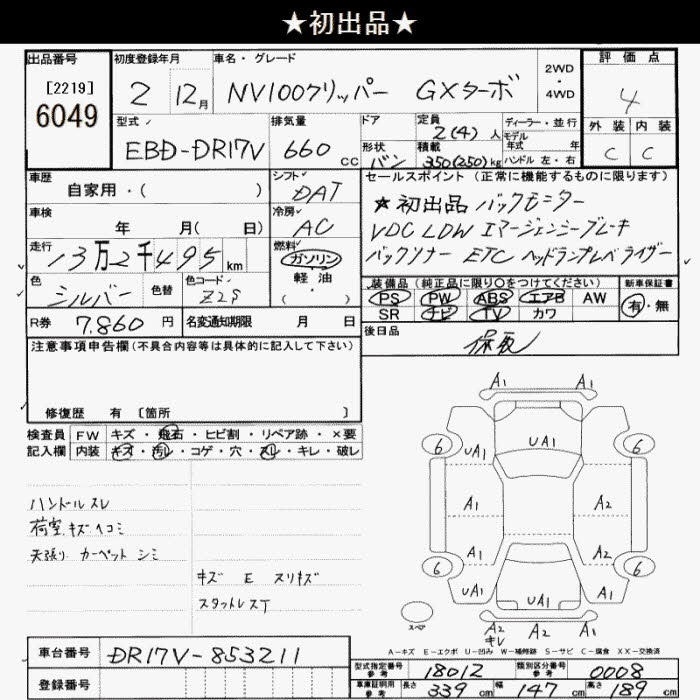 ★初出品★
出品番号
[2219]
6049
初度登録年月
2 12月
車名・グレード
NV100クリッパー GXターボ
2WD
・
4WD
評価点
4
型式
EBD-DR17V
排気量
660 cc
ドア
形状
バン
定員
2(4)人
積載
350(250)kg
ディーラー・並行
モデル
年式 年
ハンドル 左・右
外装 内装
C C
車歴
自家用・( )
シフト
DAT
車検
年 月( 日)
冷房
AC
走行
13万2千495km
燃料
ガソリン
軽・油
( )
色
シルバー
色替
色コード
Z2S
R券
7,860 円
名変通知期限 月 日
セールスポイント (正常に機能するものに限ります)
★初出品 バックモニター
VDC LDW エマージェンシーブレーキ
バックソナー ETC ヘッドランプレベライザー
装備品(純正品に限り○をつけてください)
PS PW ABS エアB AW
SR ナビ TV カワ
新車保証書
有・無
後日品
保取
注意事項申告欄(不具合内容等は具体的に記入して下さい)
修復歴 有 〔箇所 〕
検査員
記入欄
FW キズ・飛石・ヒビ割・リペア跡・×要
内装 キズ・汚レ・コゲ・穴・スレ・キレ・破レ
ハンドルスレ
荷室キズヘコミ
天張り カーペット シミ
キズ E スリキズ
スタットレスT
A1 A1
6 UA1 UA1 6
A1 A2
A1 A2
6 UA1 UA1 A1 6
スペア
A2 A2 A1
キレ
A-キズ E-エクボ U-凹み W-補修跡 S-サビ C-腐食 XX-交換済
車台番号
DR17V-853211
登録番号
型式指定番号
参考
18012
類別区分番号
参考
0008
車庫証明用
参考
長さ 339 cm 幅 147 cm 高さ 189 cm